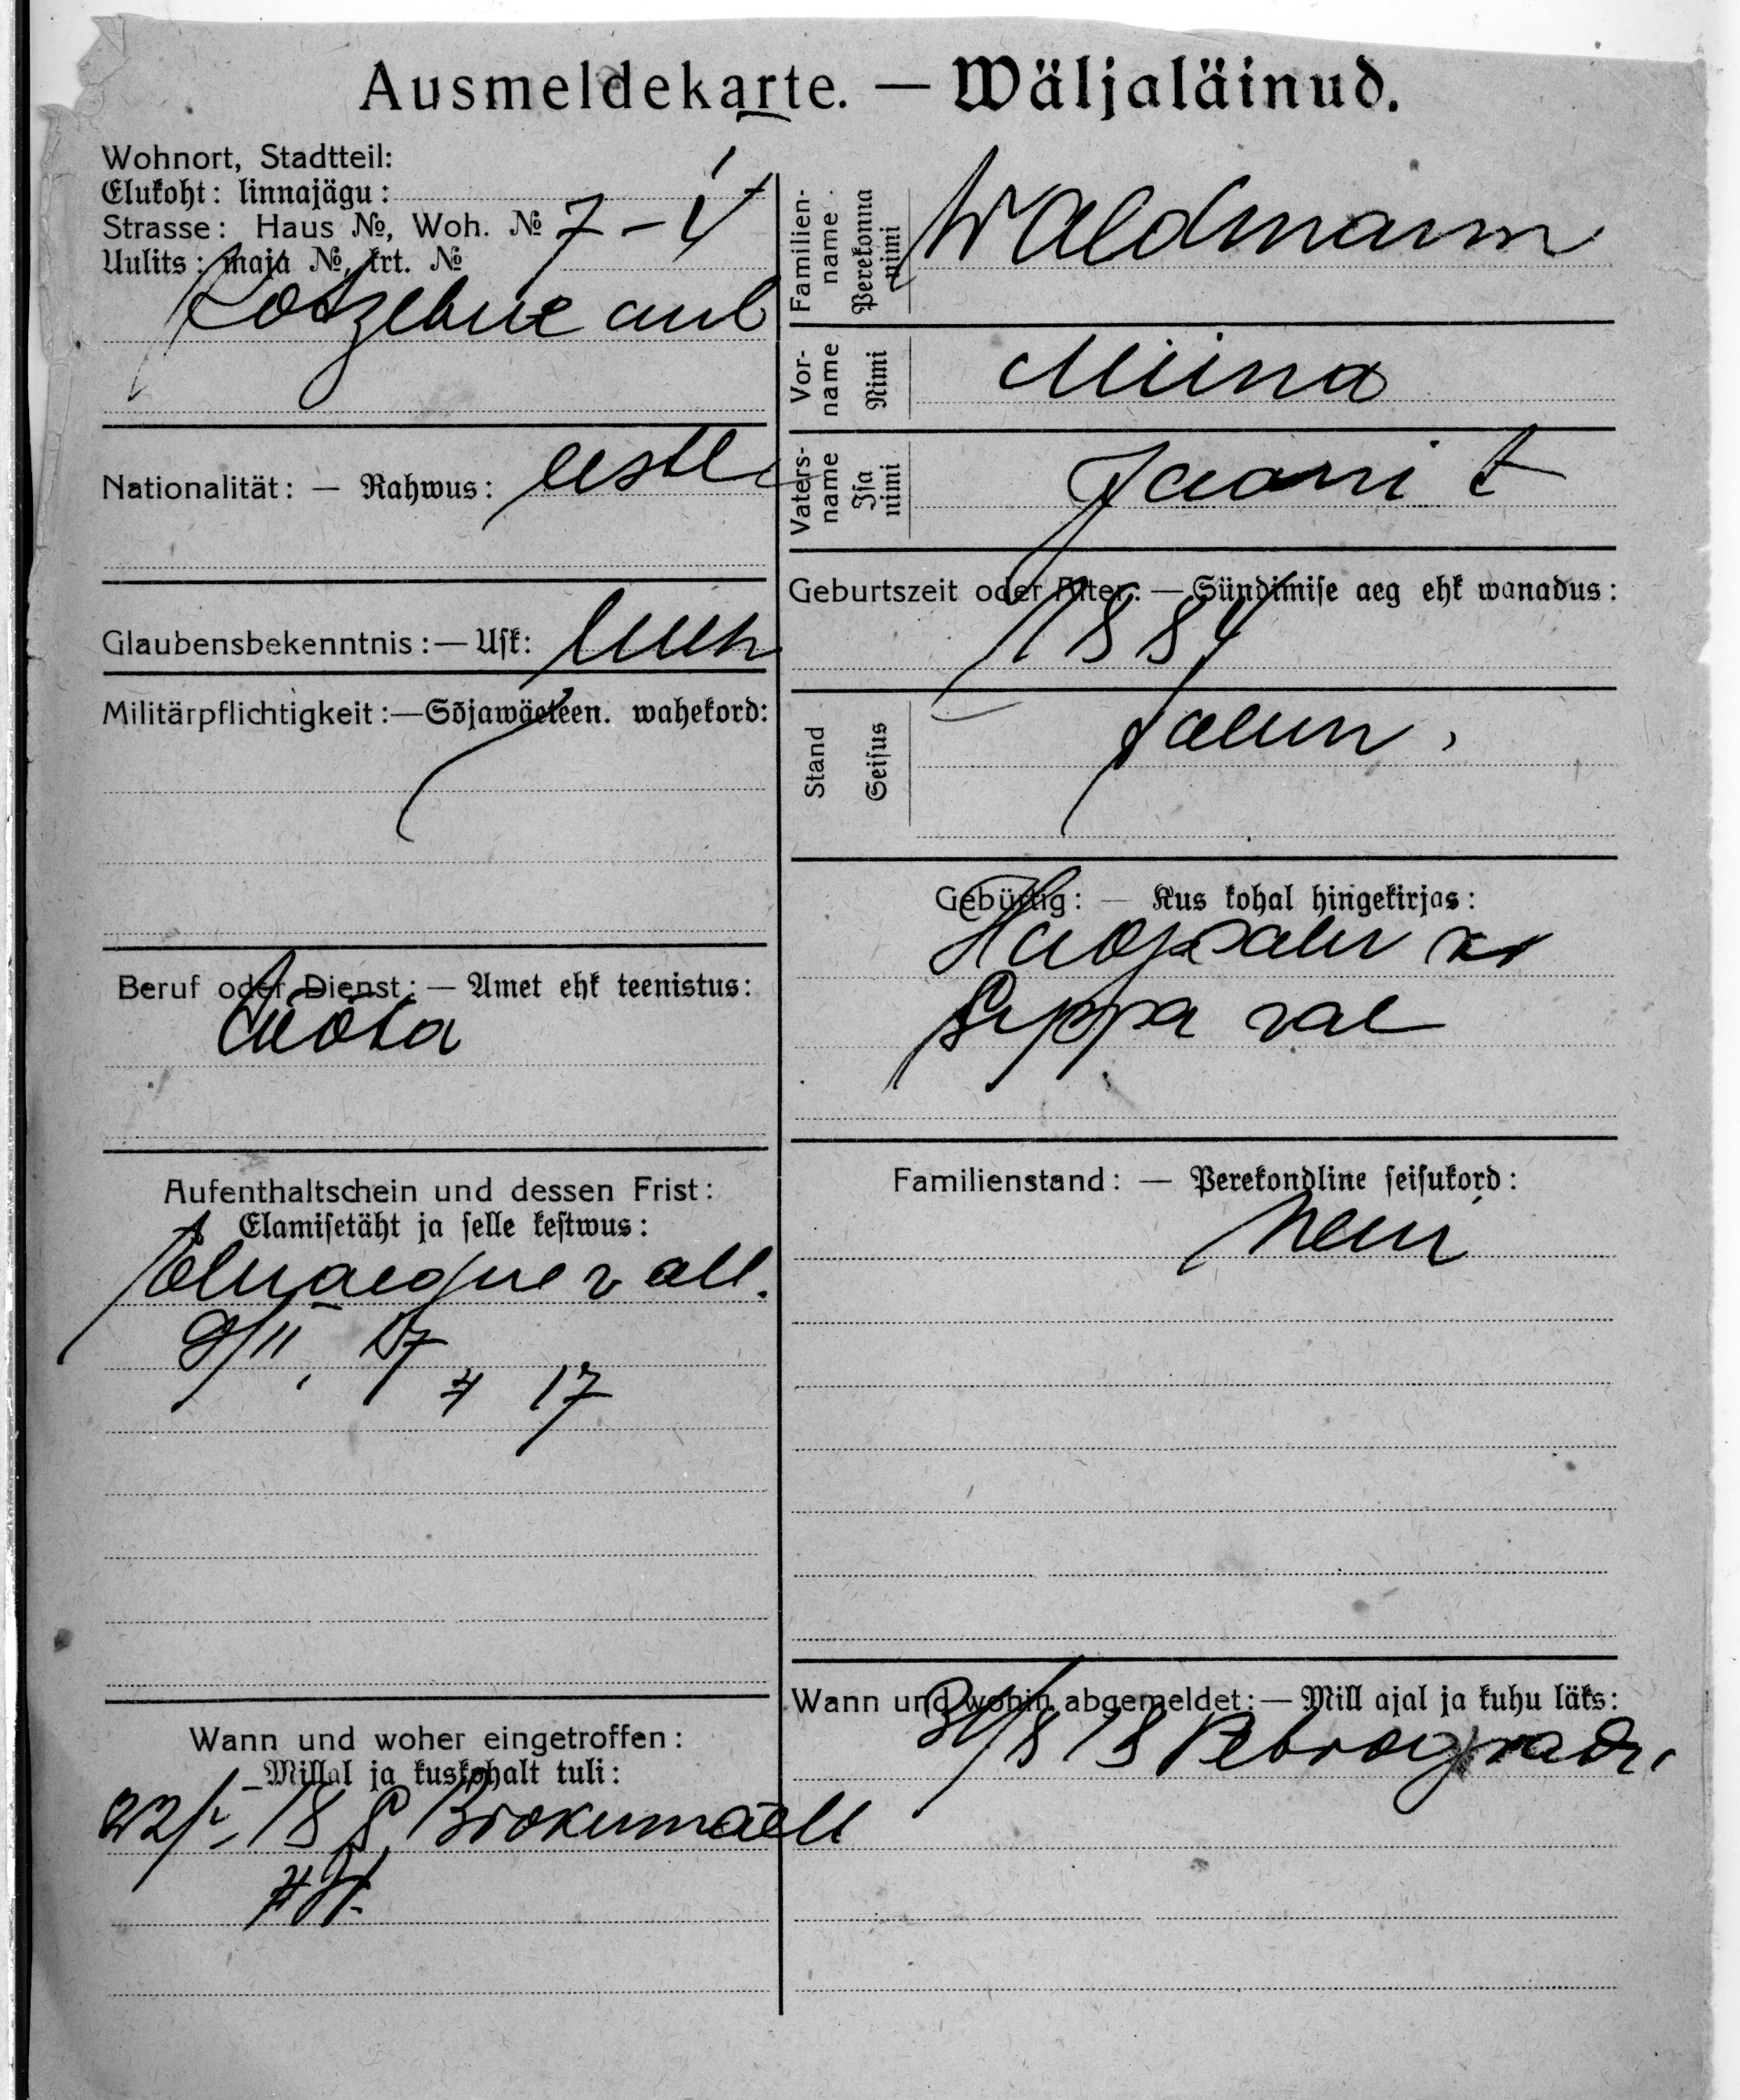 Ausmeldekarte. — Wäljaläinud.
Wohnort, Stadtteil:
Elukoht: linnajägu:
Strasse: Haus №, Woh. № 7 – 4
Uulits: maja №, krt. №
Kotzebue
Nationalität: — Rahwus: eestl
Glaubensbekenntnis: — Usk: luth
Militärpflichtigkeit: — Sõjawäeteen. wahekord:
Beruf oder Dienst: — Amet ehk teenistus:
Aufenthaltschein und dessen Frist:
Elamisetäht ja selle kestwus:
all.
9/II. 17
# 17
Wann und woher eingetroffen:
Millal ja kuskohalt tuli:
22/ 18
Familien-name Perekonna nimi Waldmann
Vor-name Nimi Miina
Vaters-name Isa nimi Jaani t
Geburtszeit oder Alter: — Sündimise aeg ehk wanadus:
1884
Stand Seisus talun.
Gebürtig: — Kus kohal hingekirjas:
Haapsalu kr
val
Familienstand: — Perekondline seisukord:
neiu
Wann und wohin abgemeldet: — Mill ajal ja kuhu läks:
/8 18 Petrogradi